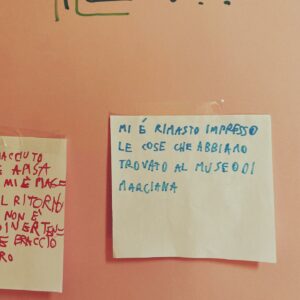 MI É RIMASTO IMPRESSO
LE COSE CHE ABBIAMO
TROVATO AL MUSEO DI
MARCIANA
ACCIUTO
APISA
MI È PIACE
L RITORNO
NON È
DIVERTEN-
E BRACCIO
RO